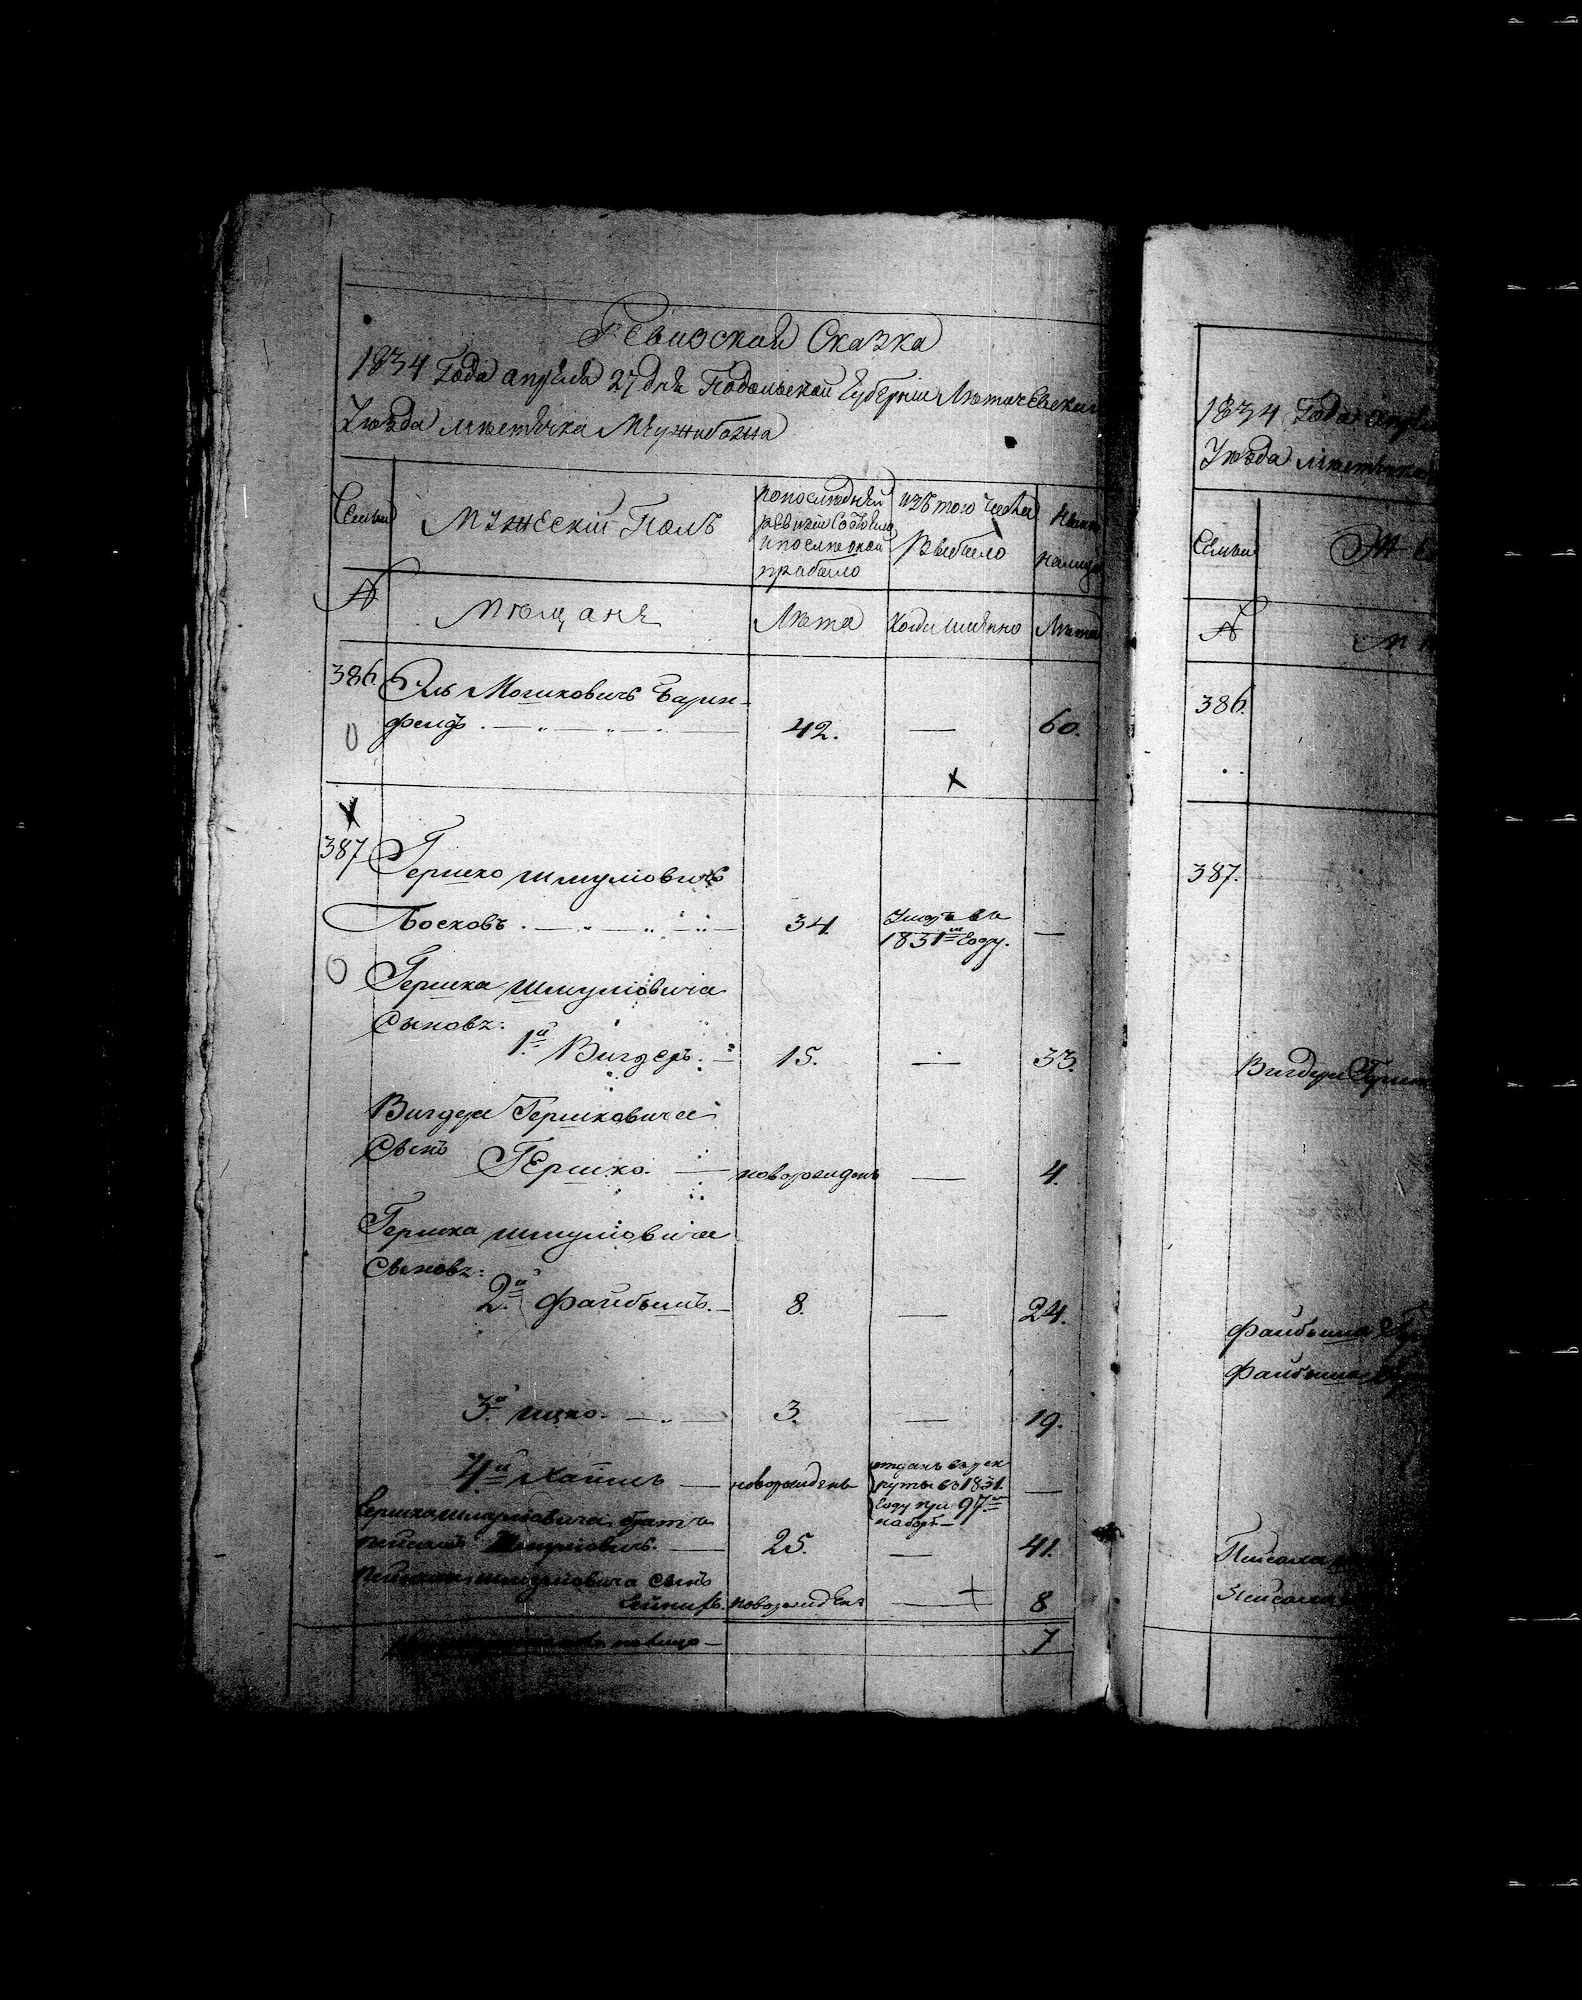 Ревизская Сказка
1834 Года апреля 27 дня Подольской Губернии Летичевскаго
Уезда местечка Меужибожа
Семьи
Мужескій Полъ
по последней
ревизіи состояло
и после оной
прибыло
изъ того числа
Выбыло
Ныне
налицо
№
Мещане
Лета
Когда именно
Лета
386.
Эль Мошковичъ Барен-
фелдъ
42.
—
60.
387
Гершко Шмулиовичъ
Посковъ
34.
Умеръ въ
1831м Году.
—
Гершка Шмулиовича
Сыновъ:
1.й Вигдеръ.
15.
—
33.
Вигдера Гершковича
Сынъ Гершко.
новорожденъ
—
4.
Гершка Шмулиовича
Сыновъ:
2.й Файбышъ.
8.
—
24.
3.й Ицко.
3.
—
19.
4.й Хаимъ
новорожденъ
отданъ въ рек
руты въ 1831.
Году при 97м
наборе
—
Гершка Шмулиовича братъ
Пейсахъ Шмулиовичъ.
25.
—
41.
Пейсаха Шмулиовича Сынъ
Лейтибъ.
новорожденъ
—
8
налицо
7
1834 Года апреля
Уезда местечка
Семьи
№
386.
387.
Вигдера Гершк
Файбыша
Файбыша
Пейсаха
Пейсаха